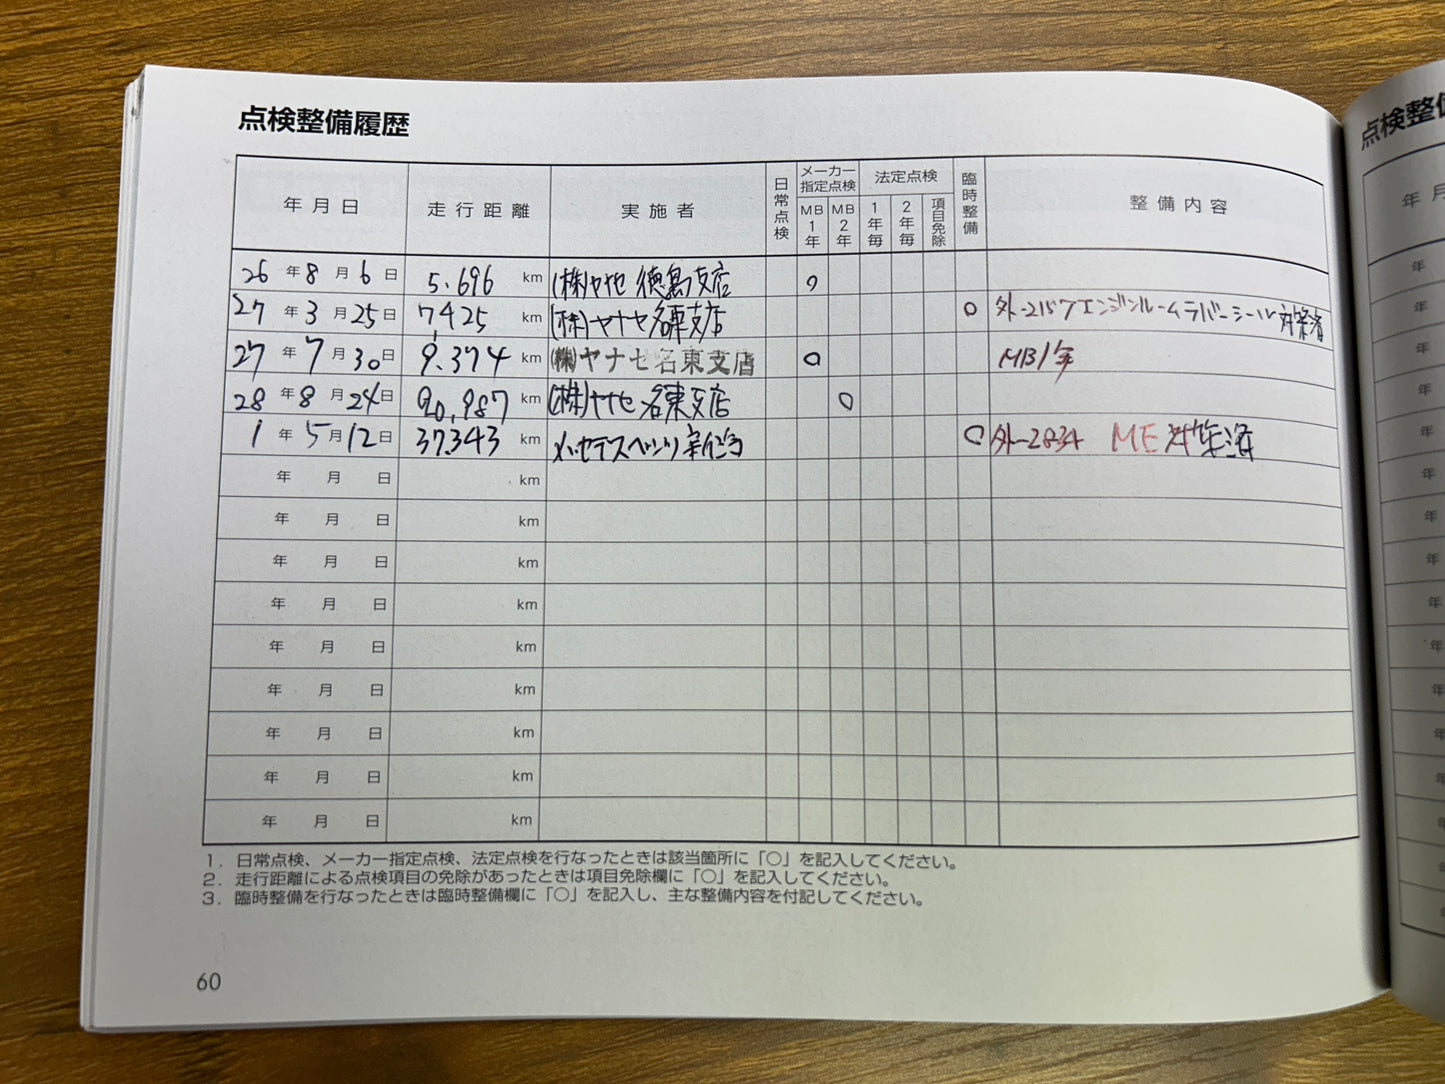 点検整備履歴
年月日 走行距離 実施者 日常点検 メーカー指定点検 MB1年 MB2年 法定点検 1年毎 2年毎 項目免除 臨時整備 整備内容
26年8月6日 5.696 km (株)ヤナセ 徳島支店 ○
27年3月25日 7425 km (株)ヤナセ名東支店 ○ 外-2157エンジンルームラバーシール対策済
27年7月30日 9.374 km (株)ヤナセ名東支店 ○ MB1年
28年8月24日 km (株)ヤナセ 名東支店 ○
1年5月12日 37.343 km ○ 外-2834 ME対策済
年 月 日 km
年 月 日 km
年 月 日 km
年 月 日 km
年 月 日 km
年 月 日 km
年 月 日 km
年 月 日 km
年 月 日 km
1. 日常点検、メーカー指定点検、法定点検を行なったときは該当箇所に「○」を記入してください。
2. 走行距離による点検項目の免除があったときは項目免除欄に「○」を記入してください。
3. 臨時整備を行なったときは臨時整備欄に「○」を記入し、主な整備内容を付記してください。
60
点検整
年
年
年
年
年
年
年
年
年
年
年
年
年
年